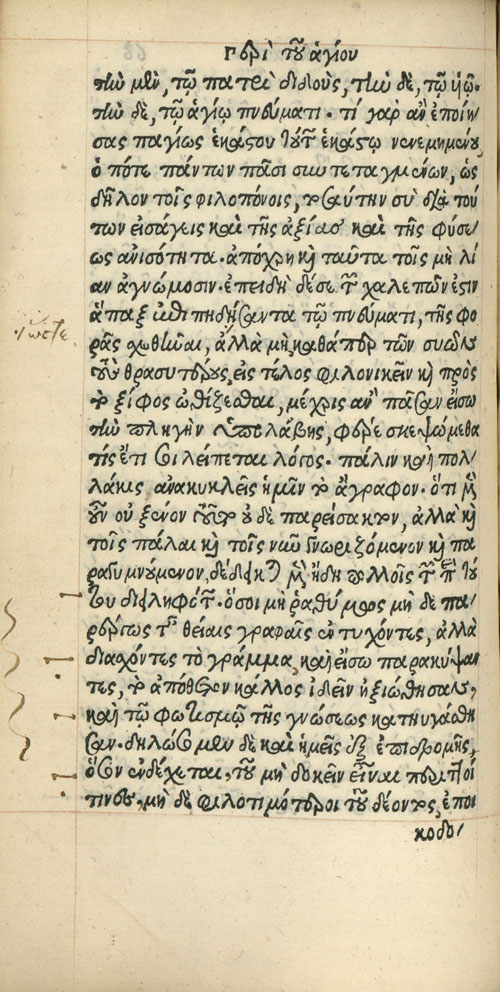 Περὶ τοῦ ἁγίου
τὴν μὲν, τῷ πατρὶ διδοὺς, τὴν δὲ, τῷ ὑιῷ.
τὴν δὲ, τῷ ἁγίῳ πνεύματι. τί γὰρ ἂν ἐποίη
σας παγίως ἑκάστου τούτων ἑκάστῳ νενεμημένου,
ὁπότε πάντων πᾶσι συντεταγμένων, ὡς
δῆλον τοῖς φιλοπόνοις, τοσαύτην σὺ διὰ τού
των εἰσάγεις καὶ τῆς ἀξίας καὶ τῆς φύσε
ως ἀνισότητα. ἀπόχρη καὶ ταῦτα τοῖς μὴ λί
αν ἀγνώμοσιν. ἐπειδὴ δέ σε τῶν χαλεπῶν ἐστὶν
ἅπαξ ἐπιπηδήσαντα τῷ πνεύματι, τῆς φο
ρᾶς σχεθῆναι, ἀλλὰ μὴ καθάπερ τῶν συῶν
τοὺς θρασυτέρους, εἰς τέλος φιλονικεῖν καὶ πρὸς
τὸ ξίφος ὠθίζεσθαι, μέχρις ἂν πᾶσαν εἴσω
τὴν πληγὴν ὑπολάβης, φέρε σκεψώμεθα
τίς ἔτι σοι λείπεται λόγος. πάλιν καὶ πολ/
λάκις ἀνακυκλεῖς ἡμῖν τὸ ἄγραφον. ὅτι μὲν
οὖν οὐ ξένον τοῦτο οὐδὲ παρείσακτον, ἀλλὰ καὶ
τοῖς πάλαι καὶ τοῖς νῦν γνωριζόμενον καὶ πα
ραγυμνούμενον, δέδεικται μὲν ἤδη πολλοῖς τῶν περὶ τού
του διειληφότων. ὅσοι μὴ ῥαθύμως μὴ δὲ πα/
ρέργως ταῖς θείαις γραφαῖς ἐντυχόντες, ἀλλὰ
διασχόντες τὸ γράμμα, καὶ εἴσω παρακύψαν
τες, τὸ ἀπόθετον κάλλος ἰδεῖν ἠξιώθησαν,
καὶ τῷ φωτισμῷ τῆς γνώσεως κατηυγάσθη
σαν. δηλώσομεν δὲ καὶ ἡμεῖς ἐξ ἐπιδρομῆς,
ὅσον ἐνδέχεται, τοῦ μὴ δοκεῖν εἶναι περιττοί
τινες, μὴ δὲ φιλοτιμότεροι τοῦ δέοντος, ἐποι
κοδο/
ὥστε